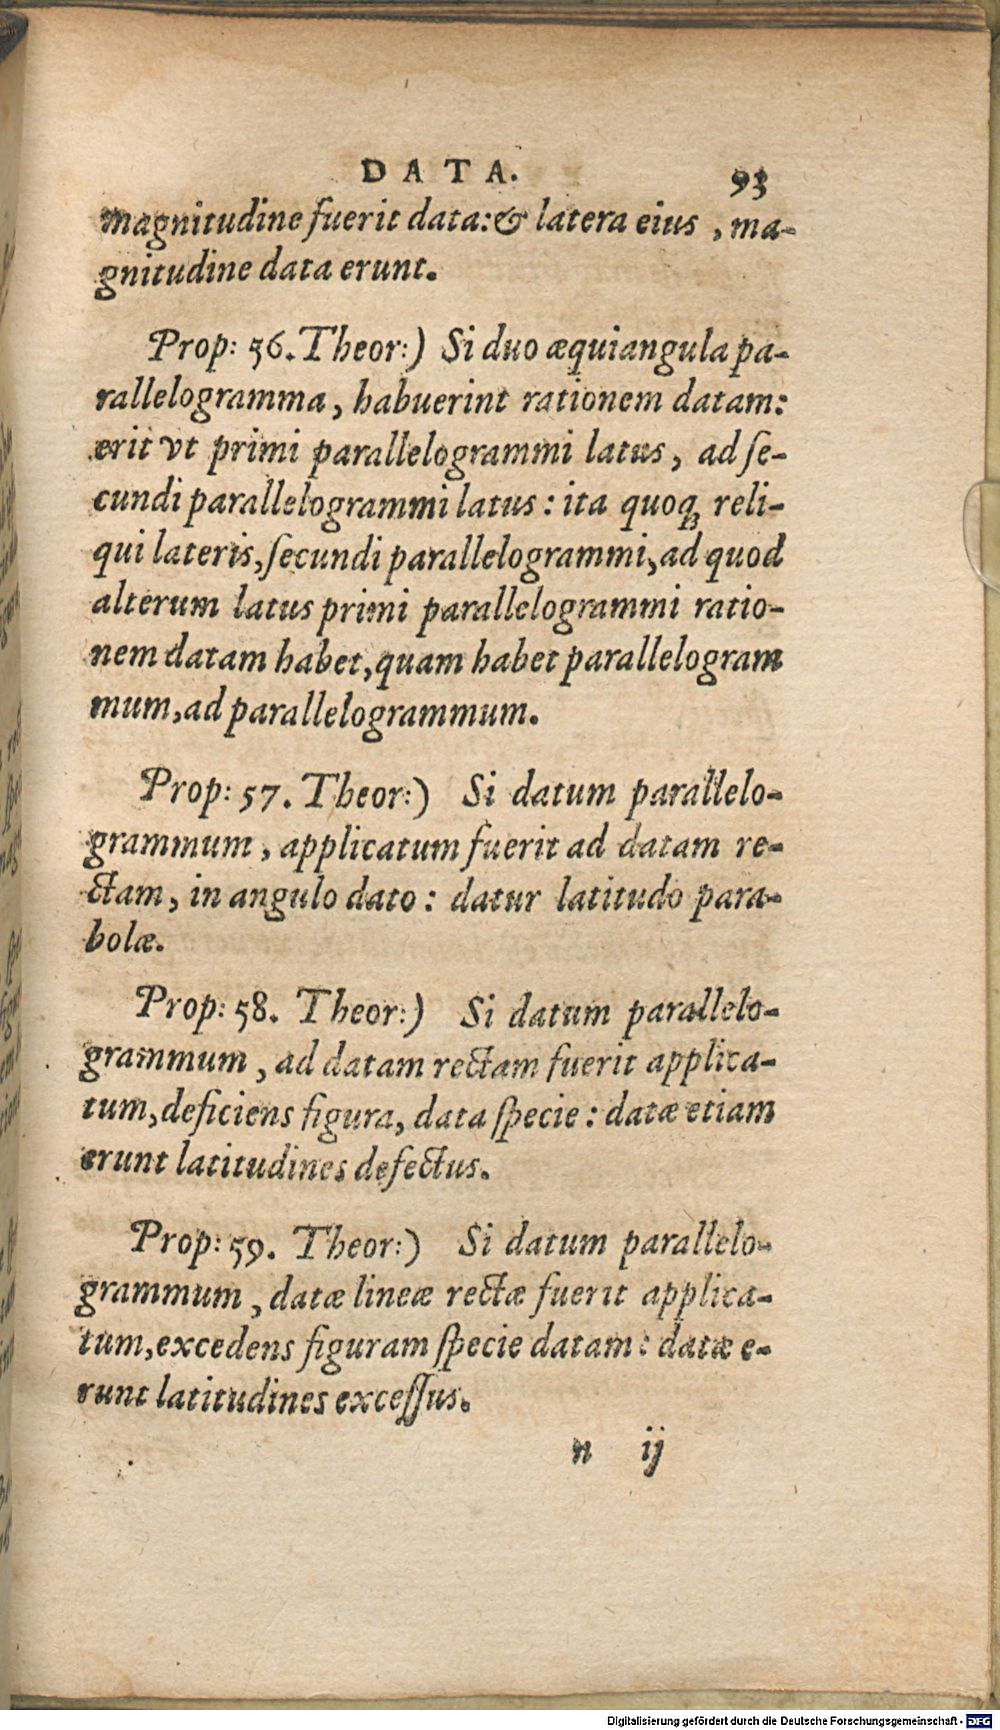 DATA. 93
magnitudine fuerit data:& latera eius, ma-
gnitudine data erunt.
Prop: 56. Theor:) Si duo æquiangula pa-
rallelogramma, habuerint rationem datam:
erit vt primi parallelogrammi latus, ad ſe-
cundi parallelogrammi latus: ita quoqꝫ reli-
qui lateris, ſecundi parallelogrammi, ad quod
alterum latus primi parallelogrammi ratio-
nem datam habet, quam habet parallelogram
mum, ad parallelogrammum.
Prop: 57. Theor:) Si datum parallelo-
grammum, applicatum fuerit ad datam re-
ctam, in angulo dato: datur latitudo para-
bolæ.
Prop: 58. Theor:) Si datum parallelo-
grammum, ad datam rectam fuerit applica-
tum, deficiens figura, data ſpecie: datæ etiam
erunt latitudines defectus.
Prop: 59. Theor:) Si datum parallelo-
grammum, datæ lineæ rectæ fuerit applica-
tum, excedens figuram ſpecie datam: datæ e-
runt latitudines exceſſus.
n ij
Digitalisierung gefördert durch die Deutsche Forschungsgemeinschaft - DFG